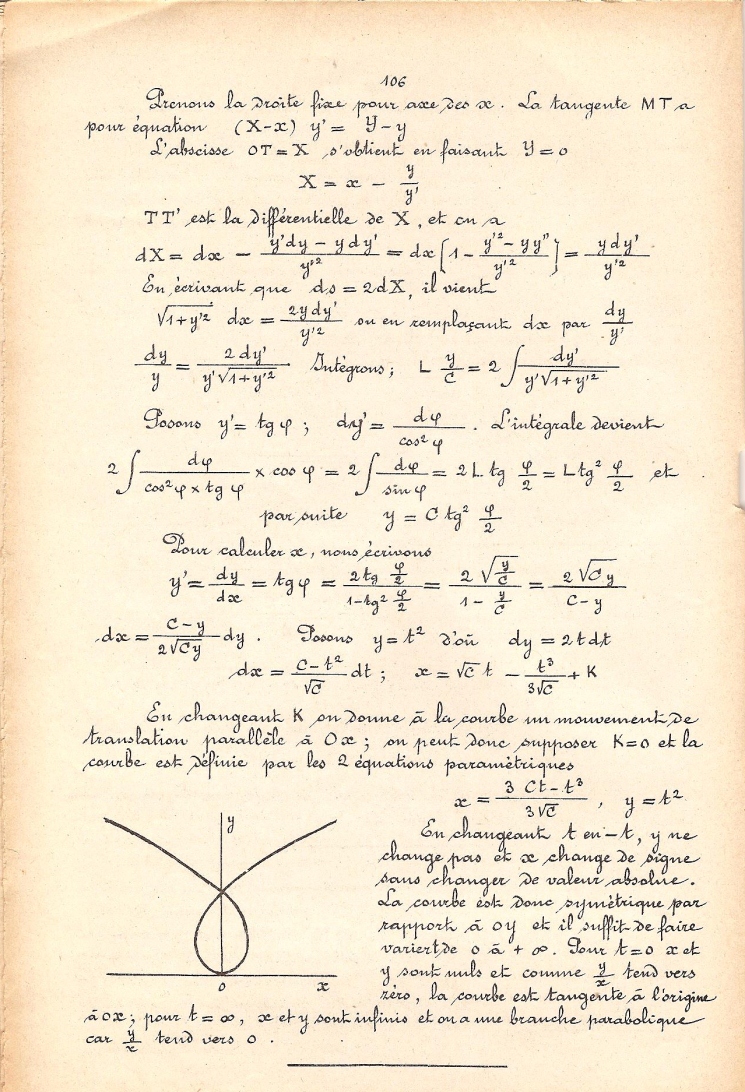 106
Prenons la droite fixe pour axe des x. La tangente MT a
pour équation (X-x) y' = Y-y
L'abscisse OT = X s'obtient en faisant Y = 0
X = x - y/y'
TT' est la différentielle de X, et on a
dX = dx - (y'dy - ydy')/y'² = dx [1 - (y'² - yy'')/y'²] = ydy'/y'²
En écrivant que ds = 2dX, il vient
√(1+y'²) dx = 2ydy'/y'² ou en remplaçant dx par dy/y'
dy/y = 2dy'/(y'√(1+y'²)) Intégrons; L y/C = 2 ∫ dy'/(y'√(1+y'²))
Posons y' = tg φ ; dy' = dφ/cos² φ . L'intégrale devient
2 ∫ dφ/(cos² φ x tg φ) x cos φ = 2 ∫ dφ/sin φ = 2 L tg φ/2 = L tg² φ/2 et
par suite y = C tg² φ/2
Pour calculer x, nous écrivons
y' = dy/dx = tg φ = (2 tg φ/2)/(1 - tg² φ/2) = (2 √(y/C))/(1 - y/C) = 2√(Cy)/(C-y)
dx = (C-y)/(2√(Cy)) dy . Posons y = t² d'où dy = 2tdt
dx = (C-t²)/√C dt ; x = √C t - t³/(3√C) + K
En changeant K on donne à la courbe un mouvement de
translation parallèle à Ox ; on peut donc supposer K=0 et la
courbe est définie par les 2 équations paramétriques
x = (3 Ct - t³)/(3√C) , y = t²
y
0
x
En changeant t en -t, y ne
change pas et x change de signe
sans changer de valeur absolue.
La courbe est donc symétrique par
rapport à OY et il suffit de faire
varier t de 0 à + ∞. Pour t=0 x et
y sont nuls et comme y/x tend vers
zéro, la courbe est tangente à l'origine
à Ox ; pour t = ∞, x et y sont infinis et on a une branche parabolique
car y/x tend vers 0 .